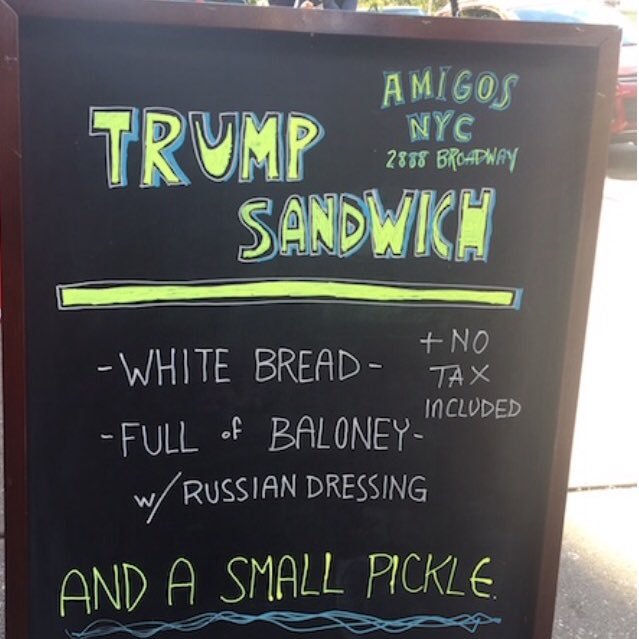 AMIGOS
NYC
2888 BROADWAY
TRUMP
SANDWICH
-WHITE BREAD-
+ NO
TAX
INCLUDED
-FULL of BALONEY-
w/ RUSSIAN DRESSING
AND A SMALL PICKLE.